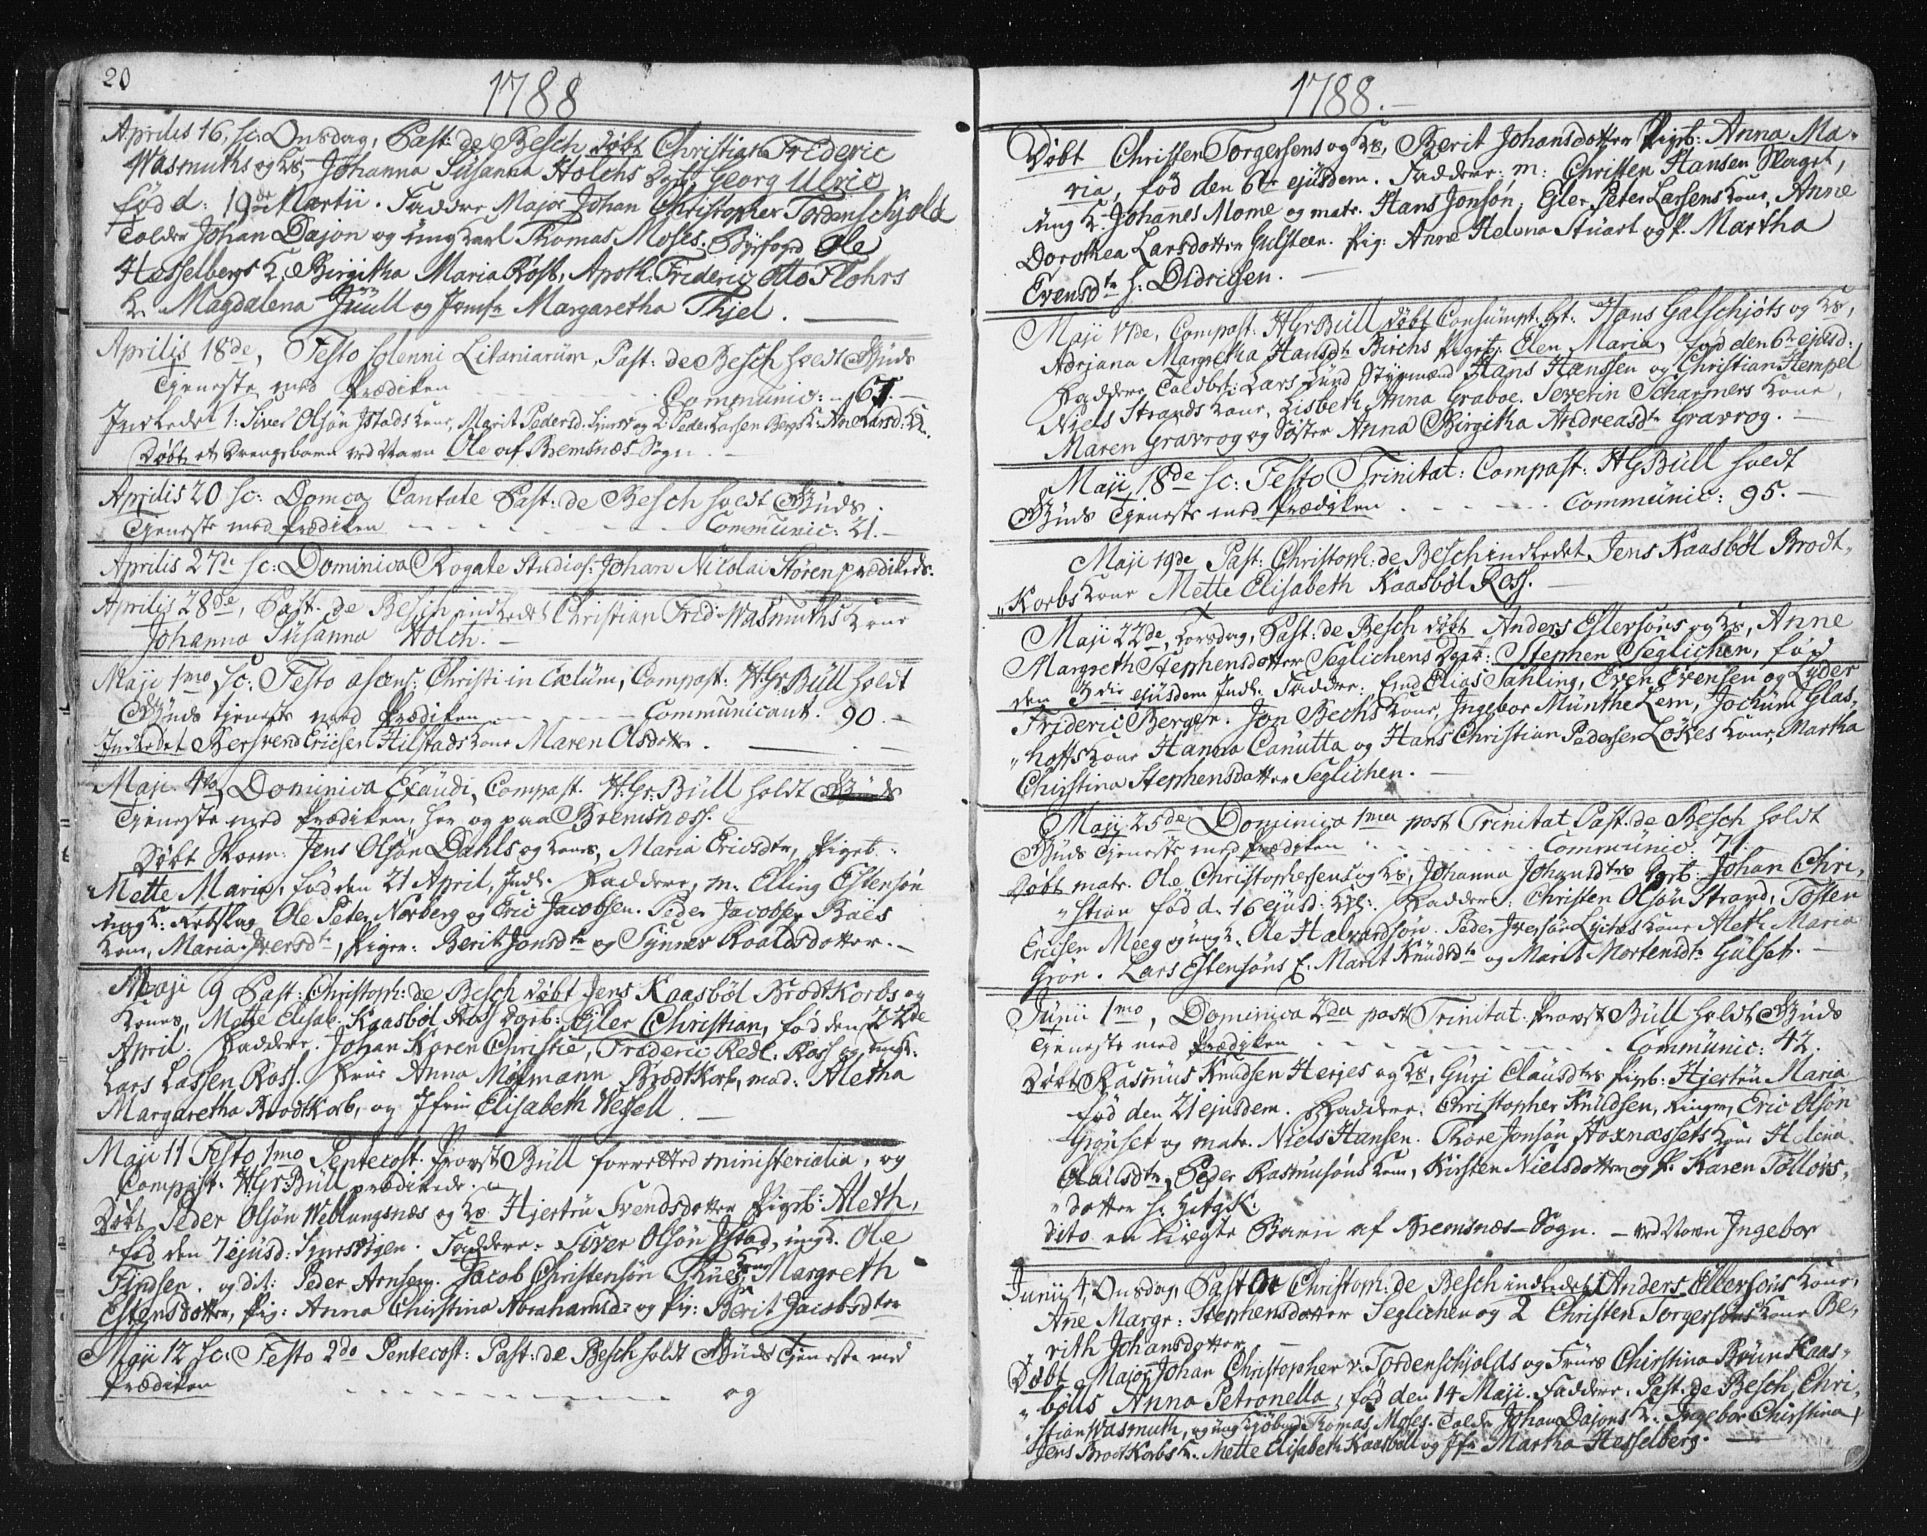 20
1788
Aprilis 16, sc: Onsdag, Past: de Besch døbt Christian Frideric
Wasmuths og Ks, Johanna Susanna Holchs Georg Ulric
fød d: 19de Martii. Faddere Major Johan Christopher Tordenschjold
Tolder Johan Dajon og ungkarl Thomas Moses. Byfogd Ole
Hesselbergs K. Birgitha Maria Røst, Apoth. Frideric Otto Flohrs
K. Magdalena Juull og Jomfr Margaretha Thjel.
Aprilis 18de, Festo solenni Litaniarum, Past: de Besch holdt Guds
Tjeneste med Prædiken Communic: 67.
Indledet 1: Siver Olsøn Istads kone, Marit Pedersd. og 2. Peder Larsen Bergs K: Ane Larsd:
Døbt et Drengebarn ved Navn Ole af Bremsnæs Sogn.
Aprilis 20 sc: Domca Cantate Past: de Besch holdt Guds
Tjeneste med Prædiken Communic: 21.
Aprilis 27de sc: Dominica Rogate Studios: Johan Nicolai Støren prædikede.
Aprilis 28de, Past. de Besch indledet Christian Frid: Wasmuths Kone
Johanna Susanna Holch.
Maji 1mo sc: Festo ascens: Christi in Cælum, Compast: H Gr Bull holdt
Guds tjeneste med Prædiken Communicant. 90.
Indledet Bersvend Ericsen Hilstads kone Maren Olsdotter.
Maji 4to, Dominica Exaudi, Compast. H. Gr: Bull holdt Guds
Tjeneste med Prædiken, her og paa Bremsnæss.
Døbt Skoem: Jens Olsøn Dahls og kones, Maria Ericsdtr, Pigeb:
Mette Maria, fød den 21 April, Indl. Faddere, m. Elling Estensøn
ung K: Ole Peter Norberg og Eric Jacobsen. Peder Jacobsen Bøes
Kone, Maria Iversdtr, Piger: Berit Jonsdtr og Synnev Roaldsdotter.
Maji 9 Past: Christoph: de Besch døbt Jens Kaasbøl Brodtkorbs og
Kones, Mette Elisab: Kaasbøl Ross dgeb: Ejler Christian, fød den 22de
April. Faddere. Johan Koren Christie, Frideric Redl. Ross og ungk.
Lars Lassen Ross. Frue Anna Mossmann Brodtkorb, mad: Aletha
Margaretha Brodtkorb, og Jfru Elisabeth Wessell.
Maji 11 Festo 1mo Pentecost. Provst Bull forrettet ministerialia, og
Compast. H. Gr: Bull prædikede.
Døbt Peder Olsøn Weblungsnæs og Ks Hjertru Svendsdotter Pigeb: Aleth,
fød den 7 ejusd: Faddere: Siver Olsøn Istad, ungd. Ole
Findsen. og dit: Peder Arnsen. Jacob Christensøn Kone, Margreth
Estensdotter, Pig: Anna Christina Abrahamsdr og Pi: Berit Jacobsdter
Maji 12 sc: Festo 2do Pentecost: Past: de Besch holdt Guds Tjeneste med
Prædiken og
1788.
Døbt Christen Torgersens og Ks, Berit Johansdotter Pigb: Anna Ma-
ria, fød den 6te ejusdem. Faddere: m: Christen Hansen
ung K. Johannes Mome og matr. Hans Jonsøn, Ejler Peter Larsens kone, Anne
Dorothea Larsdotter Gulsteen. Pig: Anne Helena Stuart og P. Martha
Evensdtr h: Didrichsen.
Maji 17de, Compast: H Gr Bull døbt Consumpt: bt. Hans Galschjøts og Ks,
Adrjana Margretha Hansdtr Birchs Pigeb: Elen Maria, fød den 6te ejusd:
Faddere Toldbet: Lars Lund Styrmænd Hans Hanssen og Christian Hempel
Niels Strands kone, Lisbeth Anna Graboe. Severin Schavners kone,
Maren Gravrog og Søster Anna Birgitha Andreasdtr Gravrog.
Maji 18de sc: Festo Trinitat: Compast: H G Bull holdt
Guds Tjeneste med Prædiken Communic: 95.
Maji 19de Past: Christoph: de Besch indledet Jens Kaasbøl Brodt-
korbs Kone Mette Elisabeth Kaasbøl Ross.
Maji 22de, Torsdag, Past: de Besch døbt Anders Ellersøns og Ks, Anne
Margreth Stephensdotter Seglichens dgeb: Stephen Seglichen, fød
den 3die ejusdem Indl. Faddere: Elias Sahling, Even Evensen og Lyder
Frideric Berger. Jon Bechs kone, Ingebor Münthe Lem, Jochum Glas-
hoffs kone Hanna Canutta og Hans Christian Pedersen Løkes kone, Martha
Christina Stephensdotter Seglichen.
Maji 25de Dominica 1ma post Trinitat Past. de Besch holdt
Guds Tjeneste med Prædyken Communic. 71.
Døbt matr. Ole Christophersens og Ks, Johanna Johansdtrs Dgeb: Johan Chri-
stian fød d. 16 ejusd: Faddere: Christen Olsøn Strand, Tosten
Ericsen Meeg og ungk. Ole Halvorssøn. Peder Iversøn kone Aleth Maria
Grøn. Lars Estensøns K. Marit Knudsdtr og Marit Mortensdtr Gulset.
Junii 1mo, Dominica 2da post Trinitat. Provst Bull holdt Guds
Tjeneste med Prædyken Communic: 42.
Døbt Rasmus Knudsen Herjes og Ks, Guri Clausdtrs Pigeb: Hjertru Maria
fød den 21 ejusdem. Faddere: Christopher Knudsen, Ringer, Eric Olsøn
Grønset og matr. Niels Hansen. Thore Jonsøn Hoxnæssets Kone Helena
Olailsdtr, Peder Rasmusøns kone, Kirsten Nielsdotter og P. Karen Tolloøs-
dotter h:
dito en Ægte Barn af Bremsnæs Sogn. ved Navn Ingebor
Junii 4, Onsdag, Pastor Christoph: de Besch indledet Anders Ellersøns kone,
Ane Margr: Stephensdotter Seglichen og 2 Christen Torgersøns kone Be-
rith Johansdotter
Døbt Major Johan Christopher v. Tordenschjolds og Frues Christina Bruun Kaas-
bølls Anna Petronella, fød den 14 Maji. Faddere. Past. de Besch, Chri-
stian Wasmuth, og ung Tomas Moses. Tolder Johan Dajons K. Ingebor Christina,
Jens Brodtkorbs K. Mette Elisabeth Kaasbøll og Jfr Martha Hesselberg.